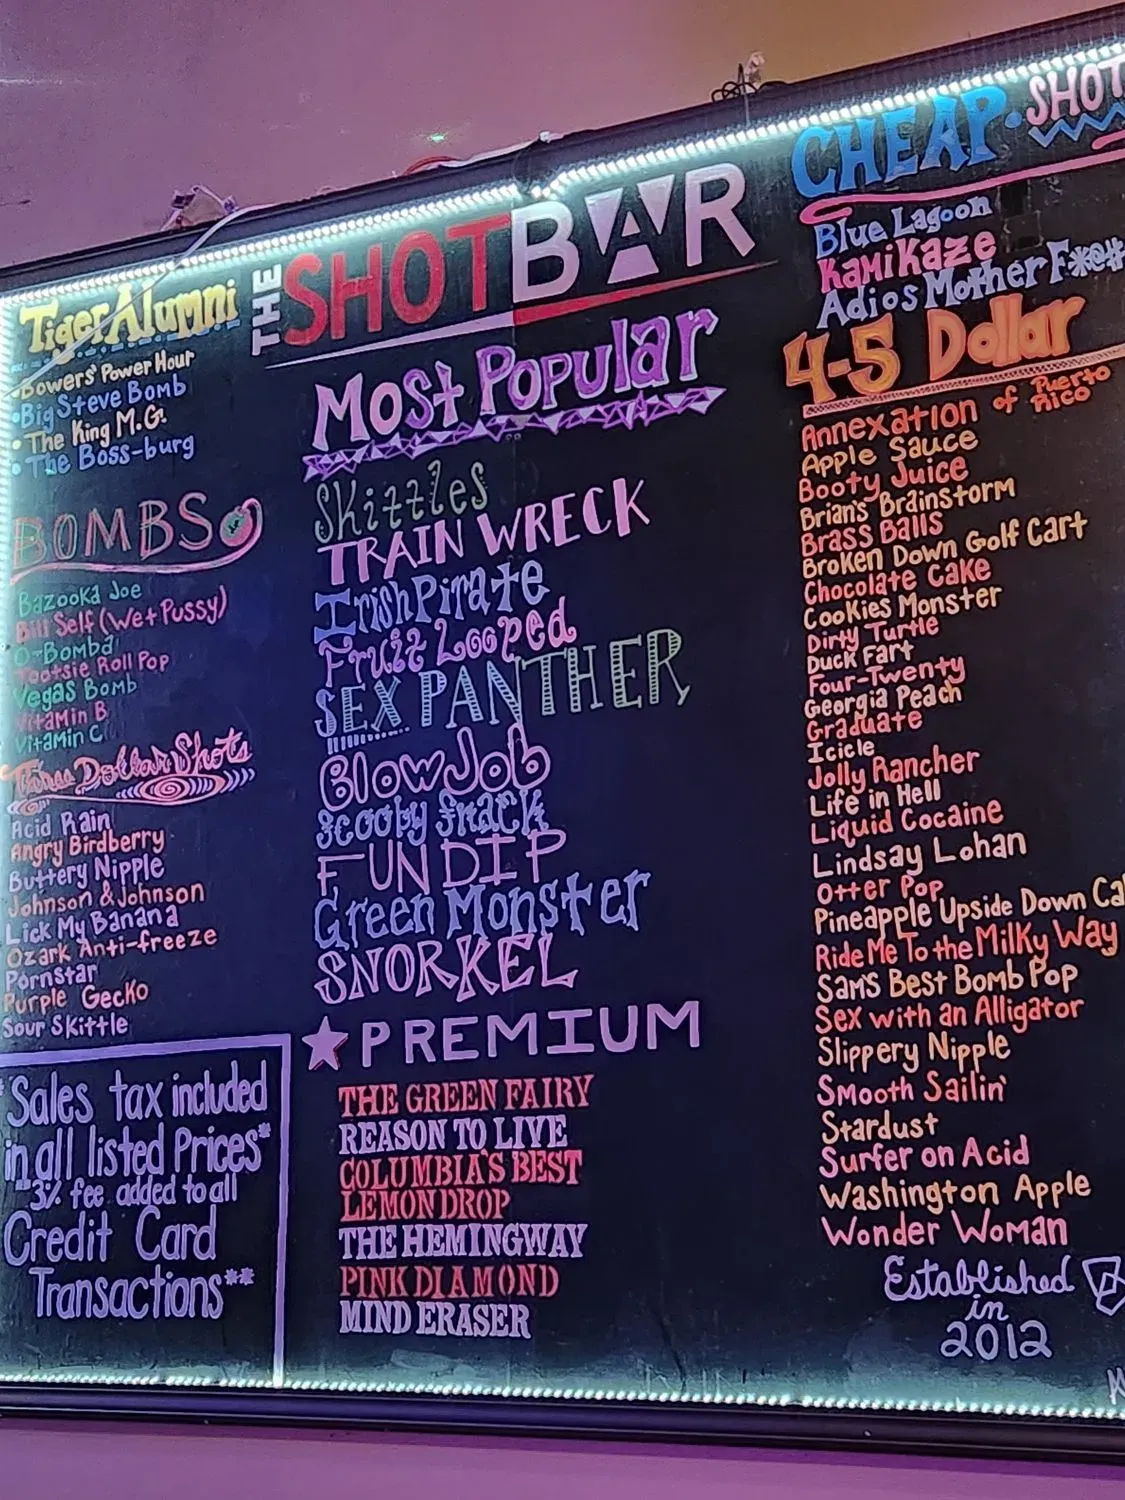 Tiger Alumni
Bowers' Power Hour
• Big Steve Bomb
• The King M.G.
• The Boss-burg
BOMBS
Bazooka Joe
Bill Self (Wet Pussy)
O-Bomba
Tootsie Roll Pop
Vegas Bomb
Vitamin B
Vitamin C
Three Dollar Shots
Acid Rain
Angry Birdberry
Buttery Nipple
Johnson & Johnson
Lick My Banana
Ozark Anti-freeze
Pornstar
Purple Gecko
Sour Skittle
*Sales tax included
in all listed Prices*
*3% fee added to all
Credit Card
Transactions**
THE SHOTBAR
Most Popular
Skittles
TRAIN WRECK
Irish Pirate
Fruit Looped
SEX PANTHER
Blow Job
Scooby Snack
FUN DIP
Green Monster
SNORKEL
★ PREMIUM
THE GREEN FAIRY
REASON TO LIVE
COLUMBIA'S BEST
LEMON DROP
THE HEMINGWAY
PINK DIAMOND
MIND ERASER
CHEAP • SHOT
Blue Lagoon
Kamikaze
Adios Mother F*@#
4-5 Dollar
Annexation of Puerto Rico
Apple Sauce
Booty Juice
Brian's Brainstorm
Brass Balls
Broken Down Golf Cart
Chocolate Cake
Cookies Monster
Dirty Turtle
Duck Fart
Four-Twenty
Georgia Peach
Graduate
Icicle
Jolly Rancher
Life in Hell
Liquid Cocaine
Lindsay Lohan
Otter Pop
Pineapple Upside Down Ca
Ride Me To the Milky Way
Sam's Best Bomb Pop
Sex with an Alligator
Slippery Nipple
Smooth Sailin'
Stardust
Surfer on Acid
Washington Apple
Wonder Woman
Established
in
2012